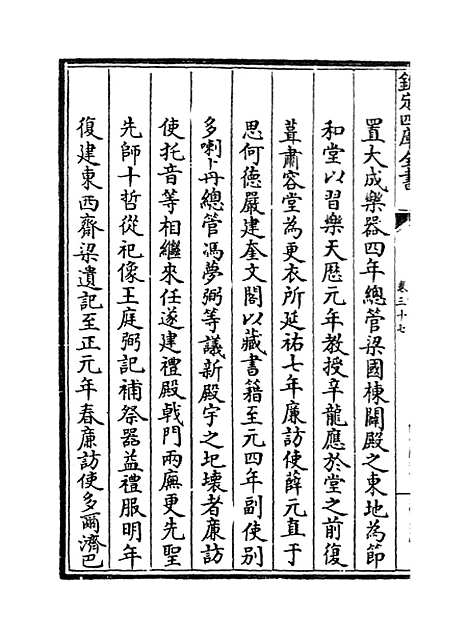 欽定四庫全書
卷三十七
置大成樂器四年總管梁國棟闢殿之東地為節
和堂以習樂天厯元年教授辛龍應於堂之前復
葺肅容堂為更衣所延祐七年廉訪使薛元直于
思何德嚴建奎文閣以藏書籍至元四年副使别
多喇卜丹總管馮夢弼等議新殿宇之圯壊者廉訪
使托音等相繼來任遂建禮殿㦸門兩廡更先聖
先師十哲從祀像王庭弼記補祭器益禮服明年
復建東西齋梁遺記至正元年春廉訪使多爾濟巴